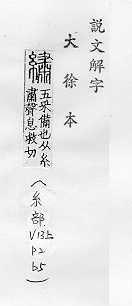 說文解字
大徐本
繡 五采備也从糸
肅聲息救切
(糸部
V13上
P2
b5)